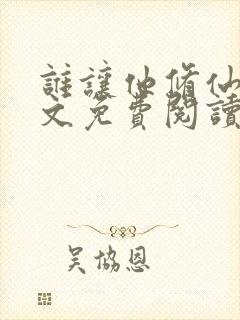 誰讓他修仙
文免費閱讀
吳協恩